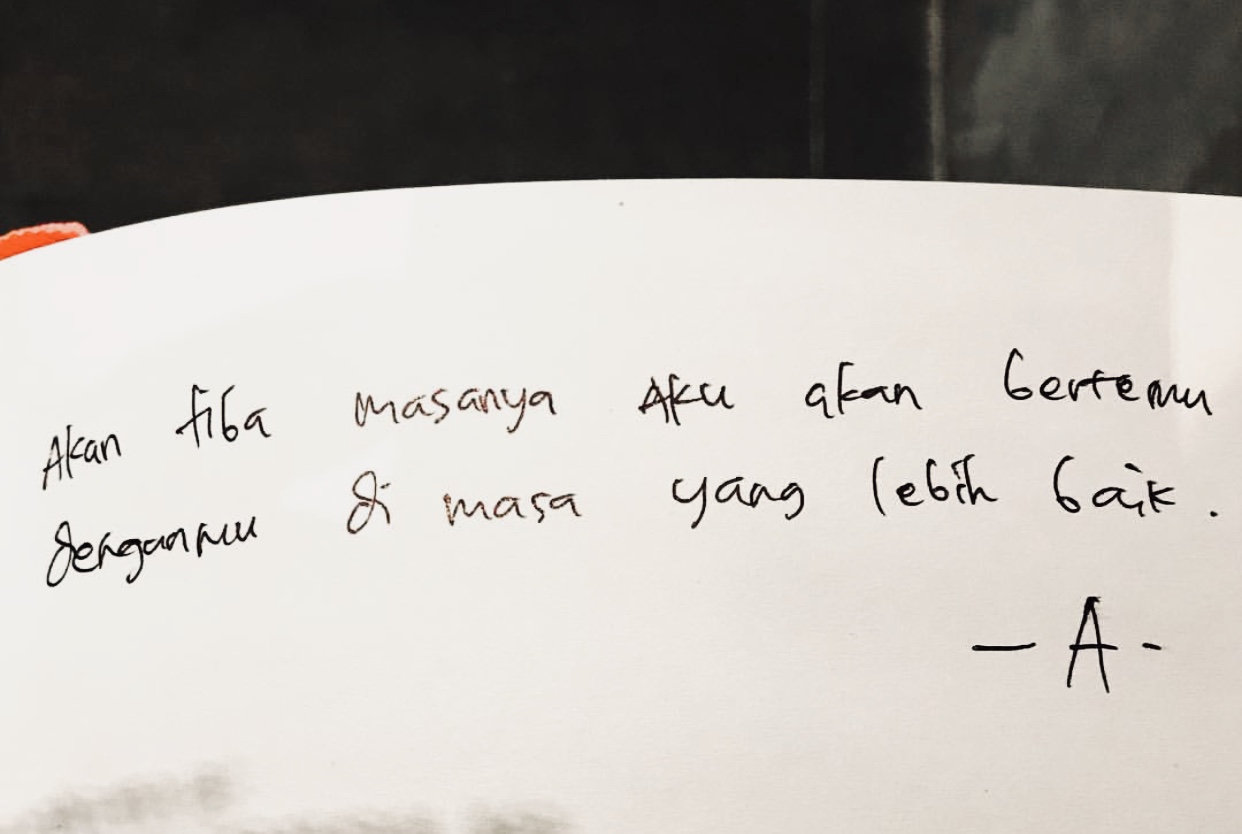 Akan tiba masanya Aku akan bertemu
denganmu di masa yang lebih baik.
- A -